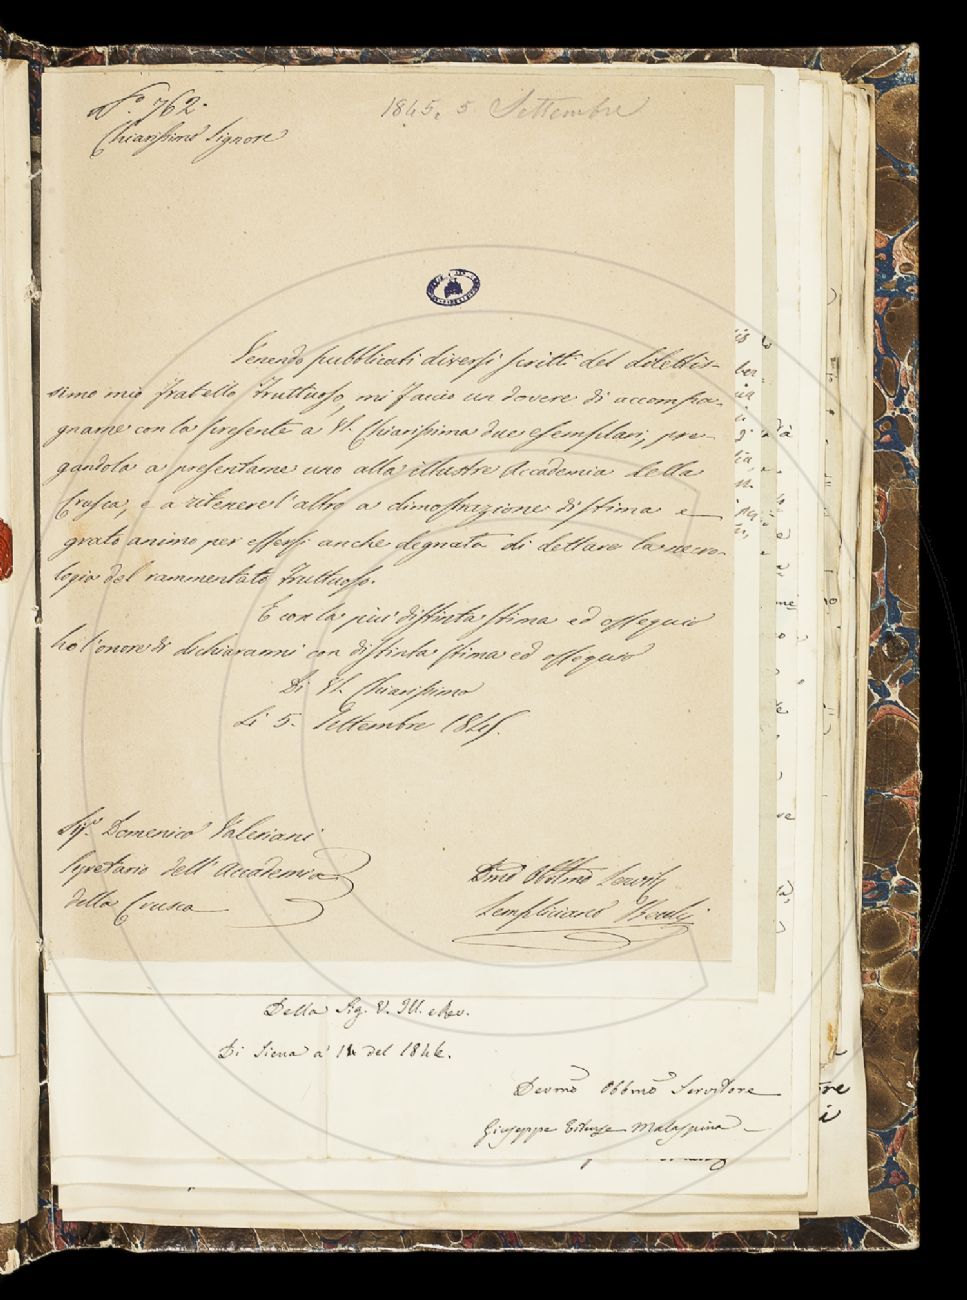 N.° 762.
1845, 5 Settembre
Chiarissimo Signore
Venendo pubblicati diversi scritti del dilettis-
simo mio fratello Fruttuoso, mi faccio un dovere di accompa-
gnarne con la presente a VS. Chiarissima due esemplari, pre-
gandola a presentarne uno alla illustre Accademia della
Crusca, e a ritenere l'altro a dimostrazione di stima e
grato animo per essersi anche degnata di dettare la necro-
logia del rammentato Fruttuoso.
E con la più distinta stima ed ossequio
ho l'onore di dichiararmi con distinta stima ed ossequio
Di VS. Chiarissima
Li 5. Settembre 1845.
Sig.r Domenico Valeriani
Segretario dell'Accademia
della Crusca
Dmo Obblmo Servitr
Sempliciano Becchi
Della Sig. V. Ill. e Rev.
Di Siena a' 14 del 1844.
Devmo Obbmo Servitore
Giuseppe Malaspina